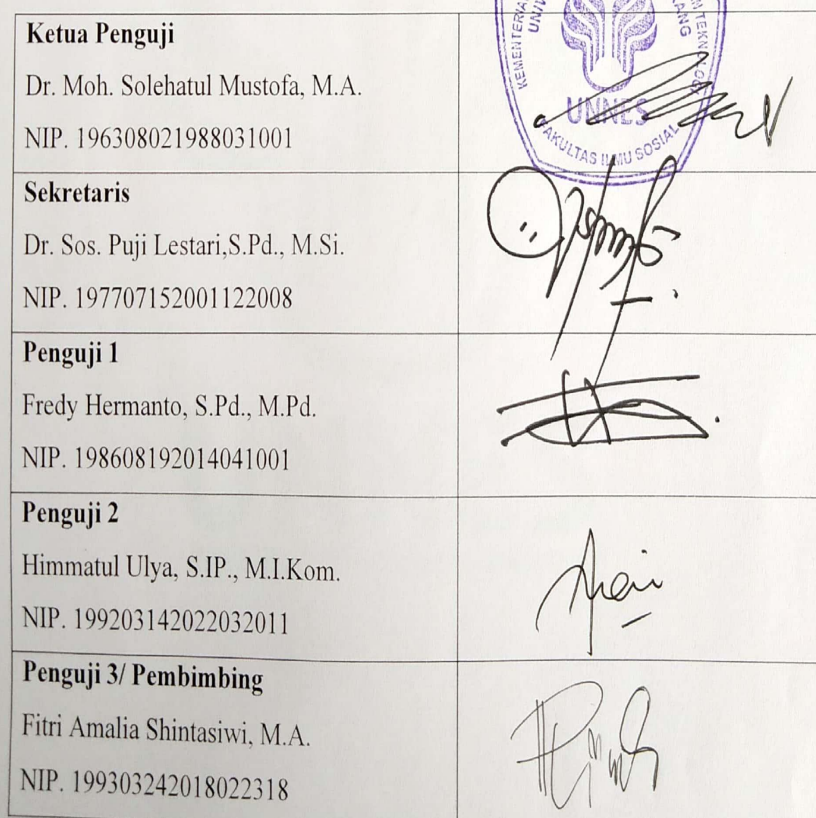 Ketua Penguji
Dr. Moh. Solehatul Mustofa, M.A.
NIP. 196308021988031001
KEMENTERIA
UNIV
ANG
N TEKNOLOGI
UNNES
FAKULTAS ILMU SOSIAL
Sekretaris
Dr. Sos. Puji Lestari,S.Pd., M.Si.
NIP. 197707152001122008
Penguji 1
Fredy Hermanto, S.Pd., M.Pd.
NIP. 198608192014041001
Penguji 2
Himmatul Ulya, S.IP., M.I.Kom.
NIP. 199203142022032011
Penguji 3/ Pembimbing
Fitri Amalia Shintasiwi, M.A.
NIP. 199303242018022318